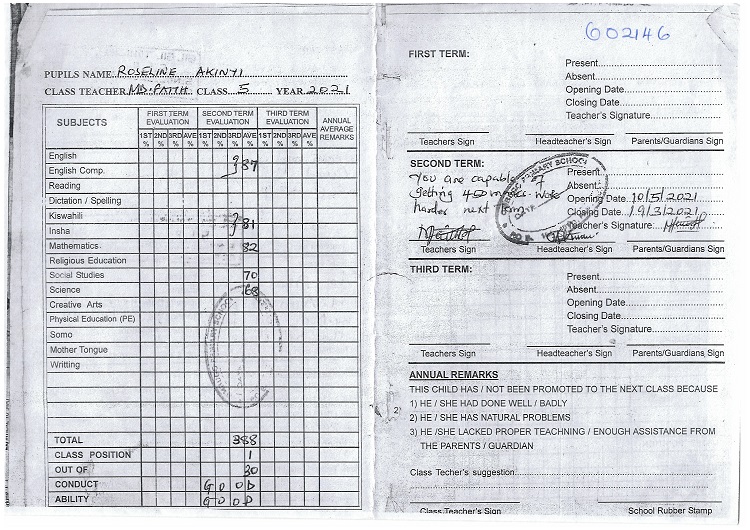 PUPILS NAME ROSELINE AKINYI
CLASS TEACHER MD. FAITH CLASS 5 YEAR 2021
SUBJECTS FIRST TERM EVALUATION SECOND TERM EVALUATION THIRD TERM EVALUATION ANNUAL AVERAGE REMARKS
1ST % 2ND % 3RD % AVE % 1ST % 2ND % 3RD % AVE % 1ST % 2ND % 3RD % AVE %
English
English Comp. 87
Reading
Dictation / Spelling
Kiswahili
Insha 81
Mathematics 82
Religious Education
Social Studies 70
Science 68
Creative Arts
Physical Education (PE)
Somo
Mother Tongue
Writting
TOTAL 388
CLASS POSITION 1
OUT OF 30
CONDUCT GOOD
ABILITY GOOD
602146
FIRST TERM:
Present
Absent
Opening Date
Closing Date
Teacher's Signature
Teachers Sign Headteacher's Sign Parents/Guardians Sign
SECOND TERM:
You are capable of
getting 450 marks. Work
harder next
Present
Absent
Opening Date 10/5/2021
Closing Date 19/3/2021
Teacher's Signature
PRIMARY SCHOOL
Teachers Sign Headteacher's Sign Parents/Guardians Sign
THIRD TERM:
Present
Absent
Opening Date
Closing Date
Teacher's Signature
Teachers Sign Headteacher's Sign Parents/Guardians Sign
ANNUAL REMARKS
THIS CHILD HAS / NOT BEEN PROMOTED TO THE NEXT CLASS BECAUSE
1) HE / SHE HAD DONE WELL / BADLY
2) HE / SHE HAS NATURAL PROBLEMS
3) HE /SHE LACKED PROPER TEACHNING / ENOUGH ASSISTANCE FROM
THE PARENTS / GUARDIAN
Class Techer's suggestion
Class Teacher's Sign School Rubber Stamp